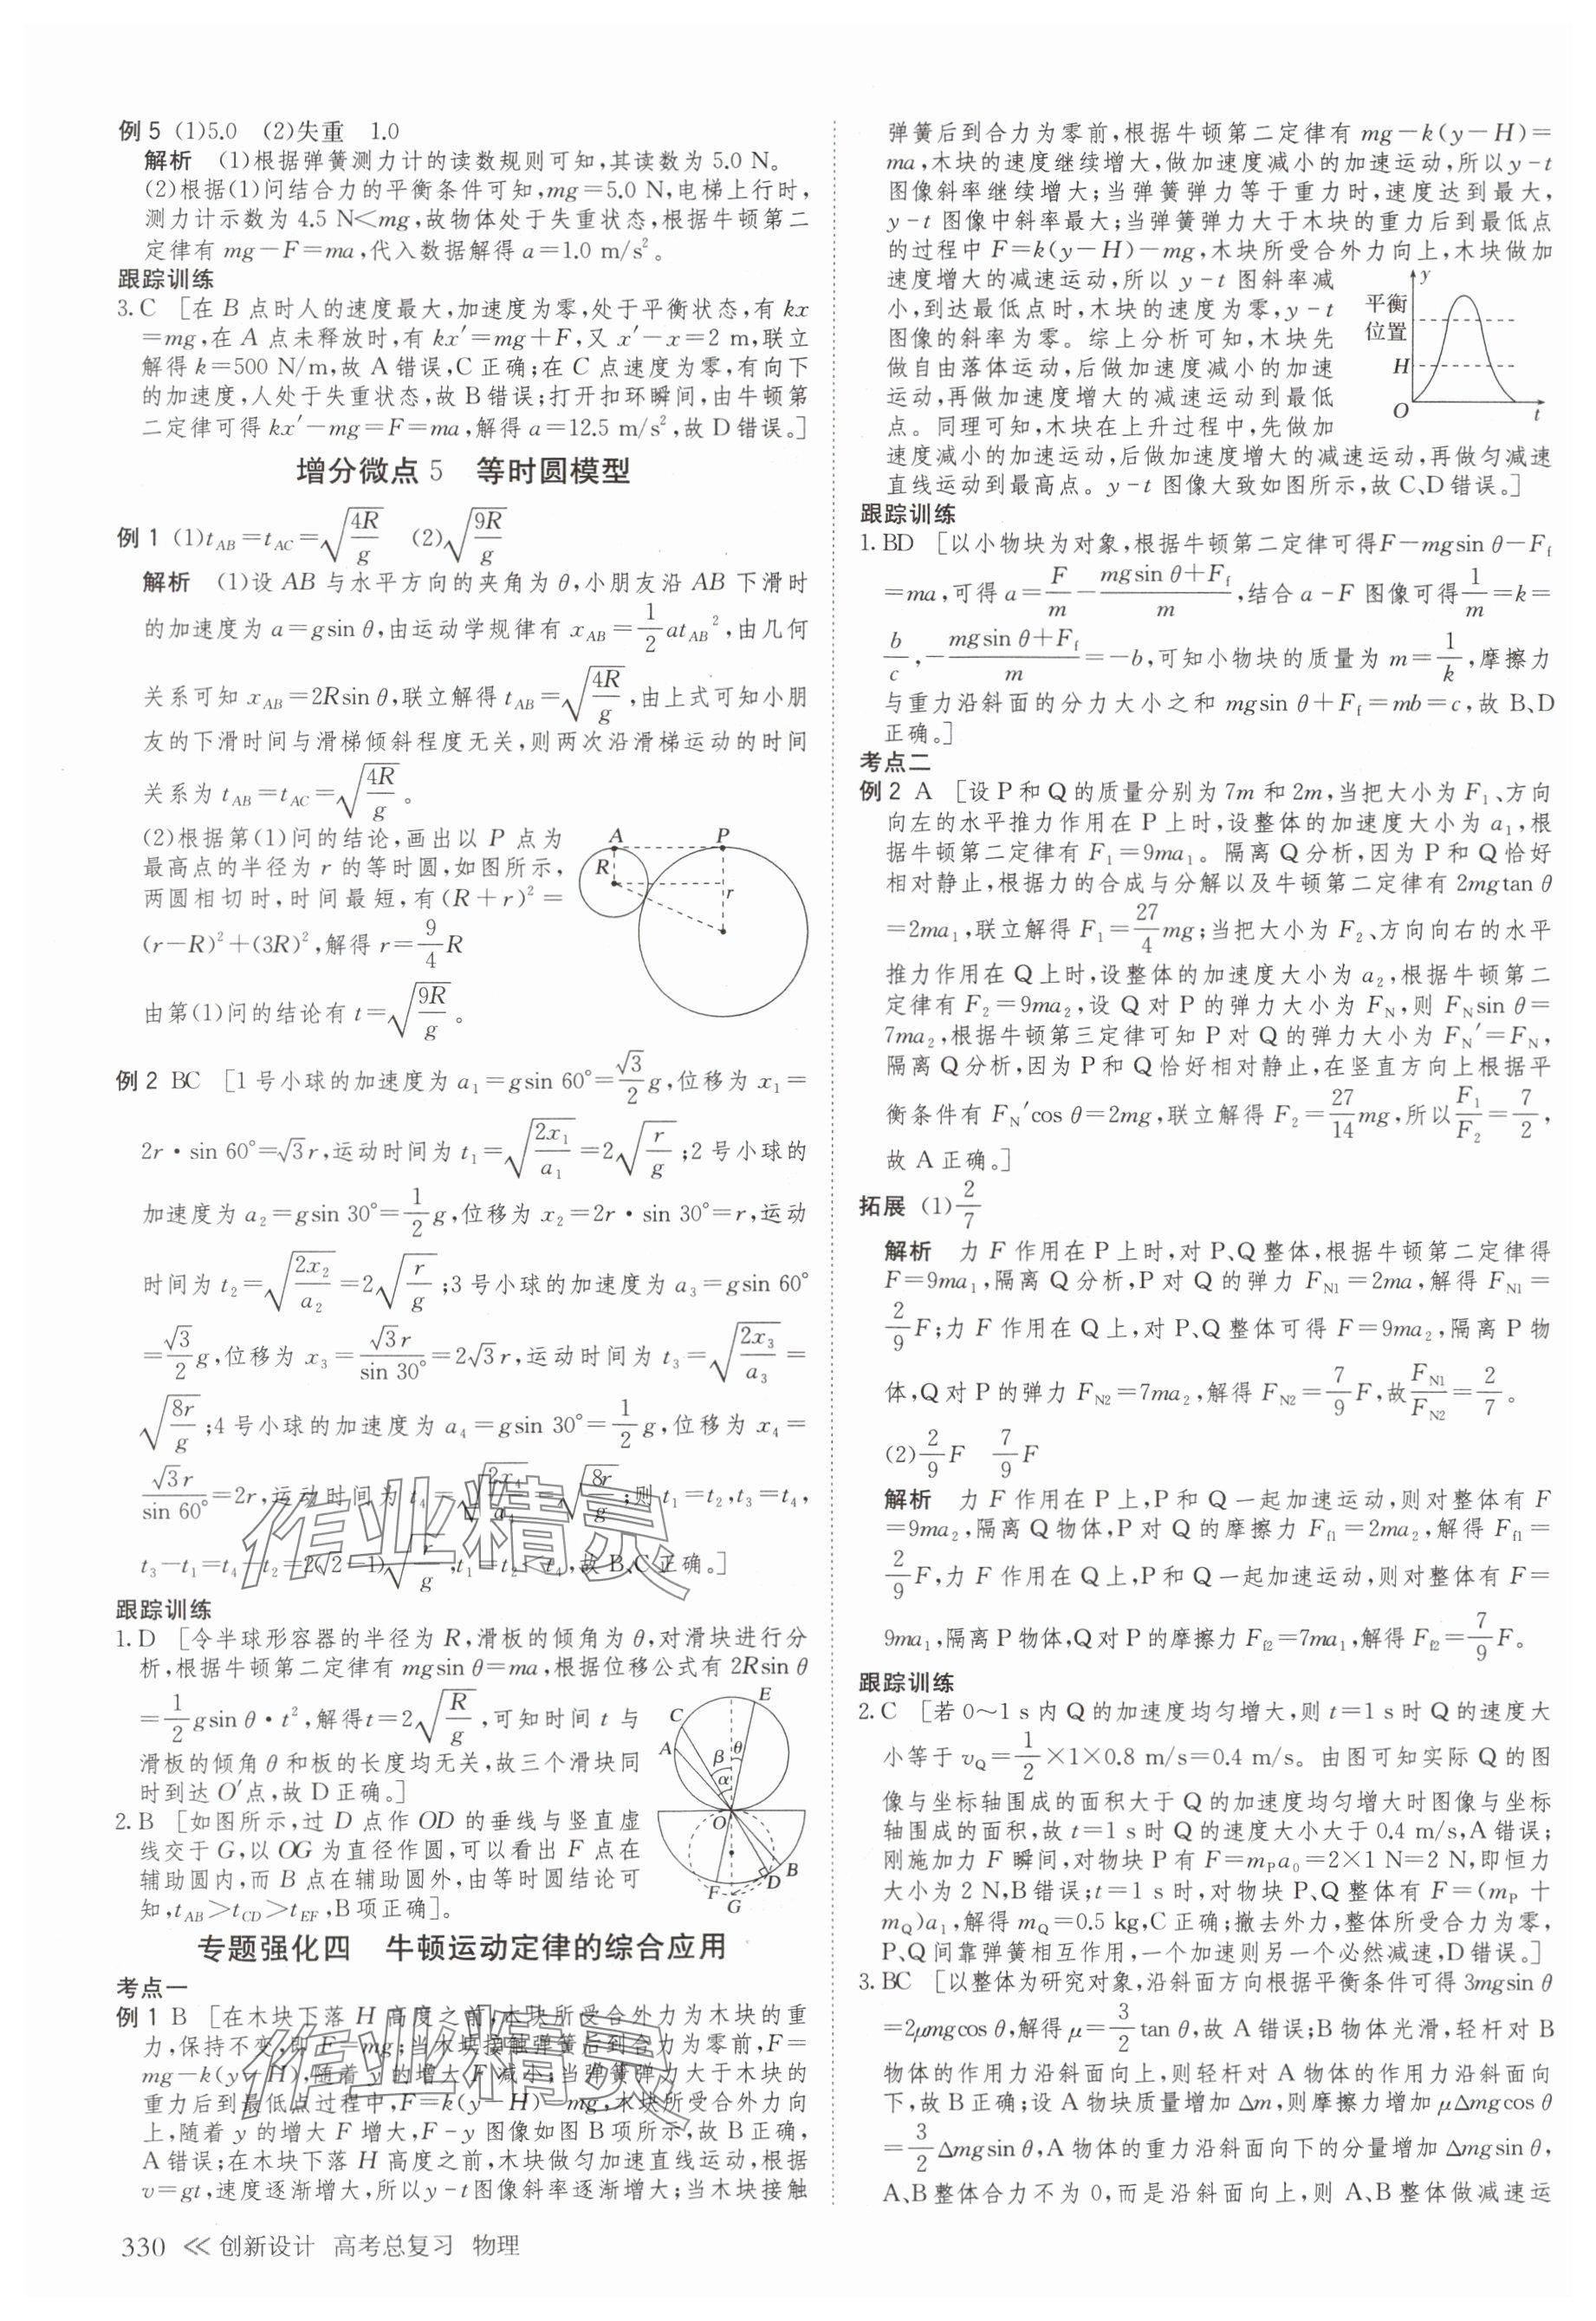 例5 (1)5.0 (2)失重 1.0
解析 (1)根据弹簧测力计的读数规则可知,其读数为 5.0 N。
(2)根据(1)问结合力的平衡条件可知,mg=5.0 N,电梯上行时,
测力计示数为 4.5 N<mg,故物体处于失重状态,根据牛顿第二
定律有 mg-F=ma,代入数据解得 a=1.0 m/s²。
跟踪训练
3.C [在 B 点时人的速度最大,加速度为零,处于平衡状态,有 kx
=mg,在 A 点未释放时,有 kx′=mg+F,又 x′-x=2 m,联立
解得 k=500 N/m,故 A 错误,C 正确;在 C 点速度为零,有向下
的加速度,人处于失重状态,故 B 错误;打开扣环瞬间,由牛顿第
二定律可得 kx′-mg=F=ma,解得 a=12.5 m/s²,故 D 错误。]
增分微点 5 等时圆模型
例1 (1)t_AB=t_AC=√(4R/g) (2)√(9R/g)
解析 (1)设 AB 与水平方向的夹角为 θ,小朋友沿 AB 下滑时
的加速度为 a=gsin θ,由运动学规律有 x_AB=1/2at_AB²,由几何
关系可知 x_AB=2Rsin θ,联立解得 t_AB=√(4R/g),由上式可知小朋
友的下滑时间与滑梯倾斜程度无关,则两次沿滑梯运动的时间
关系为 t_AB=t_AC=√(4R/g)。
(2)根据第(1)问的结论,画出以 P 点为
最高点的半径为 r 的等时圆,如图所示,
两圆相切时,时间最短,有(R+r)²=
(r-R)²+(3R)²,解得 r=9/4R
由第(1)问的结论有 t=√(9R/g)。
A P
R
r
例2 BC [1 号小球的加速度为 a₁=gsin 60°=√3/2g,位移为 x₁=
2r·sin 60°=√3r,运动时间为 t₁=√(2x₁/a₁)=2√(r/g);2 号小球的
加速度为 a₂=gsin 30°=1/2g,位移为 x₂=2r·sin 30°=r,运动
时间为 t₂=√(2x₂/a₂)=2√(r/g);3 号小球的加速度为 a₃=gsin 60°
=√3/2g,位移为 x₃=√3r/sin 30°=2√3r,运动时间为 t₃=√(2x₃/a₃)=
√(8r/g);4 号小球的加速度为 a₄=gsin 30°=1/2g,位移为 x₄=
√3r/sin 60°=2r,运动时间为 t₄=√(2x₄/a₄)=√(8r/g);则 t₁=t₂,t₃=t₄,
t₃-t₁=t₄-t₂=2(√2-1)√(r/g),t₁=t₂<t₄,故 B、C 正确。]
跟踪训练
1.D [令半球形容器的半径为 R,滑板的倾角为 θ,对滑块进行分
析,根据牛顿第二定律有 mgsin θ=ma,根据位移公式有 2Rsin θ
=1/2gsin θ·t²,解得t=2√(R/g),可知时间 t 与
滑板的倾角 θ 和板的长度均无关,故三个滑块同
时到达 O′点,故 D 正确。]
2.B [如图所示,过 D 点作 OD 的垂线与竖直虚
线交于 G,以 OG 为直径作圆,可以看出 F 点在
辅助圆内,而 B 点在辅助圆外,由等时圆结论可
知,t_AB>t_CD>t_EF,B 项正确]。
E
C
A
β θ
α
O
B
D
F
G
专题强化四 牛顿运动定律的综合应用
考点一
例1 B [在木块下落 H 高度之前,木块所受合外力为木块的重
力,保持不变,即 F=mg;当木块接触弹簧后到合力为零前,F=
mg-k(y-H),随着 y 的增大 F 减小;当弹簧弹力大于木块的
重力后到最低点过程中,F=k(y-H)-mg,木块所受合外力向
上,随着 y 的增大 F 增大,F-y 图像如图 B 项所示,故 B 正确,
A 错误;在木块下落 H 高度之前,木块做匀加速直线运动,根据
v=gt,速度逐渐增大,所以y-t图像斜率逐渐增大;当木块接触
330 << 创新设计 高考总复习 物理
弹簧后到合力为零前,根据牛顿第二定律有 mg-k(y-H)=
ma,木块的速度继续增大,做加速度减小的加速运动,所以y-t
图像斜率继续增大;当弹簧弹力等于重力时,速度达到最大,
y-t 图像中斜率最大;当弹簧弹力大于木块的重力后到最低点
的过程中 F=k(y-H)-mg,木块所受合外力向上,木块做加
速度增大的减速运动,所以 y-t 图斜率减
小,到达最低点时,木块的速度为零,y-t
图像的斜率为零。综上分析可知,木块先
做自由落体运动,后做加速度减小的加速
运动,再做加速度增大的减速运动到最低
点。同理可知,木块在上升过程中,先做加
速度减小的加速运动,后做加速度增大的减速运动,再做匀减速
直线运动到最高点。y-t 图像大致如图所示,故 C、D 错误。]
y
平衡
位置
H
O t
跟踪训练
1.BD [以小物块为对象,根据牛顿第二定律可得F-mgsin θ-F_f
=ma,可得 a=F/m-(mgsin θ+F_f)/m,结合 a-F 图像可得1/m=k=
b/c,-(mgsin θ+F_f)/m=-b,可知小物块的质量为 m=1/k,摩擦力
与重力沿斜面的分力大小之和 mgsin θ+F_f=mb=c,故 B、D
正确。]
考点二
例2 A [设 P 和 Q 的质量分别为 7m 和 2m,当把大小为 F₁、方向
向左的水平推力作用在 P 上时,设整体的加速度大小为 a₁,根
据牛顿第二定律有 F₁=9ma₁。隔离 Q 分析,因为 P 和 Q 恰好
相对静止,根据力的合成与分解以及牛顿第二定律有 2mgtan θ
=2ma₁,联立解得 F₁=27/4mg;当把大小为 F₂、方向向右的水平
推力作用在 Q 上时,设整体的加速度大小为 a₂,根据牛顿第二
定律有 F₂=9ma₂,设 Q 对 P 的弹力大小为 F_N,则 F_Nsin θ=
7ma₂,根据牛顿第三定律可知 P 对 Q 的弹力大小为 F_N′=F_N,
隔离 Q 分析,因为 P 和 Q 恰好相对静止,在竖直方向上根据平
衡条件有 F_N′cos θ=2mg,联立解得 F₂=27/14mg,所以F₁/F₂=7/2,
故 A 正确。]
拓展 (1)2/7
解析 力 F 作用在 P 上时,对 P、Q 整体,根据牛顿第二定律得
F=9ma₁,隔离 Q 分析,P 对 Q 的弹力 F_N1=2ma,解得 F_N1=
2/9F;力 F 作用在 Q 上,对 P、Q 整体可得 F=9ma₂,隔离 P 物
体,Q 对 P 的弹力 F_N2=7ma₂,解得 F_N2=7/9F,故F_N1/F_N2=2/7。
(2)2/9F 7/9F
解析 力 F 作用在 P 上,P 和 Q 一起加速运动,则对整体有 F
=9ma₂,隔离 Q 物体,P 对 Q 的摩擦力 F_f1=2ma₂,解得 F_f1=
2/9F,力 F 作用在 Q 上,P 和 Q 一起加速运动,则对整体有 F=
9ma₁,隔离 P 物体,Q 对 P 的摩擦力 F_f2=7ma₁,解得 F_f2=7/9F。
跟踪训练
2.C [若 0~1 s 内 Q 的加速度均匀增大,则 t=1 s 时 Q 的速度大
小等于 v_Q=1/2×1×0.8 m/s=0.4 m/s。由图可知实际 Q 的图
像与坐标轴围成的面积大于 Q 的加速度均匀增大时图像与坐标
轴围成的面积,故 t=1 s 时 Q 的速度大小大于 0.4 m/s,A 错误;
刚施加力 F 瞬间,对物块 P 有 F=m_Pa₀=2×1 N=2 N,即恒力
大小为 2 N,B 错误;t=1 s 时,对物块 P、Q 整体有 F=(m_P+
m_Q)a₁,解得 m_Q=0.5 kg,C 正确;撤去外力,整体所受合力为零,
P、Q 间靠弹簧相互作用,一个加速则另一个必然减速,D 错误。]
3.BC [以整体为研究对象,沿斜面方向根据平衡条件可得 3mgsin θ
=2μmgcos θ,解得 μ=3/2tan θ,故 A 错误;B 物体光滑,轻杆对 B
物体的作用力沿斜面向上,则轻杆对 A 物体的作用力沿斜面向
下,故 B 正确;设 A 物块质量增加 Δm,则摩擦力增加 μΔmgcos θ
=3/2Δmgsin θ,A 物体的重力沿斜面向下的分量增加 Δmgsin θ,
A、B 整体合力不为 0,而是沿斜面向上,则 A、B 整体做减速运
作业精灵
作业精灵